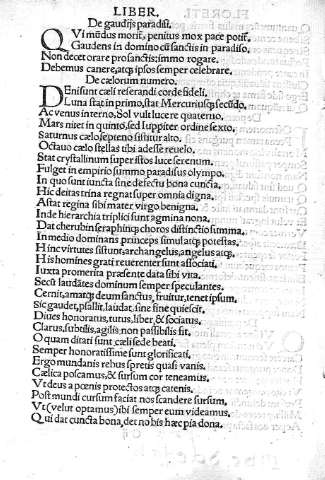 LIBER.
De gaudijs paradisi.
QVi mūdus morit, penitus mox pace potit
Gaudens in domino cū sanctis in paradiso,
Non decet orare pro sanctis; immo rogare.
Debemus canere, atq; ipsos semper celebrare.
De cælorum numero.
DEni sunt cæli reserandi corde fideli.
Luna stat in primo, stat Mercuriusq; secūdo.
Ac venus in terno, Sol vult lucere quaterno,
Mars nitet in quinto, sed Iuppiter ordine sexto,
Saturnus cælo septeno sistitur alto.
Octauo cælo stellas tibi adesse reuelo.
Stat crystallinum super istos luce serenum.
Fulget in empirio summo paradisus olympo.
In quo sunt iuncta sine defectu bona cuncta.
Hic deitas trina regnat super omnia digna.
Astat regina sibi mater virgo benigna.
Inde hierarchia triplici sunt agmina nona.
Dat cherubin seraphinq; choros distinctio summa.
In medio dominans princeps simulatq; potestas.
Hinc virtutes sistunt, archangelus, angelus atq;.
His homines grati reuerenter sunt associati.
Iuxta promerita præsente data sibi vita.
Secū laudātes dominum semper speculantes.
Cernit, amatq; deum sanctus, fruitur, tenet ipsum.
Sic gaudet, psallit, laudat, sine fine quiescit.
Diues honoratus, tutus, liber, & sociatus.
Clarus, subtilis, agilis non passibilis sit.
O quam ditati sunt cæli sede beati.
Semper honoratissime sunt glorificati.
Ergo mundanis rebus spretis quasi vanis.
Cælica poscamus, & sursum cor teneamus.
Vt deus a pœnis protectos atq; catenis.
Post mundi cursum faciat nos scandere sursum.
Vt (velut optamus) ibi semper eum videamus.
Qui dat cuncta bona, det nobis hæc pia dona.